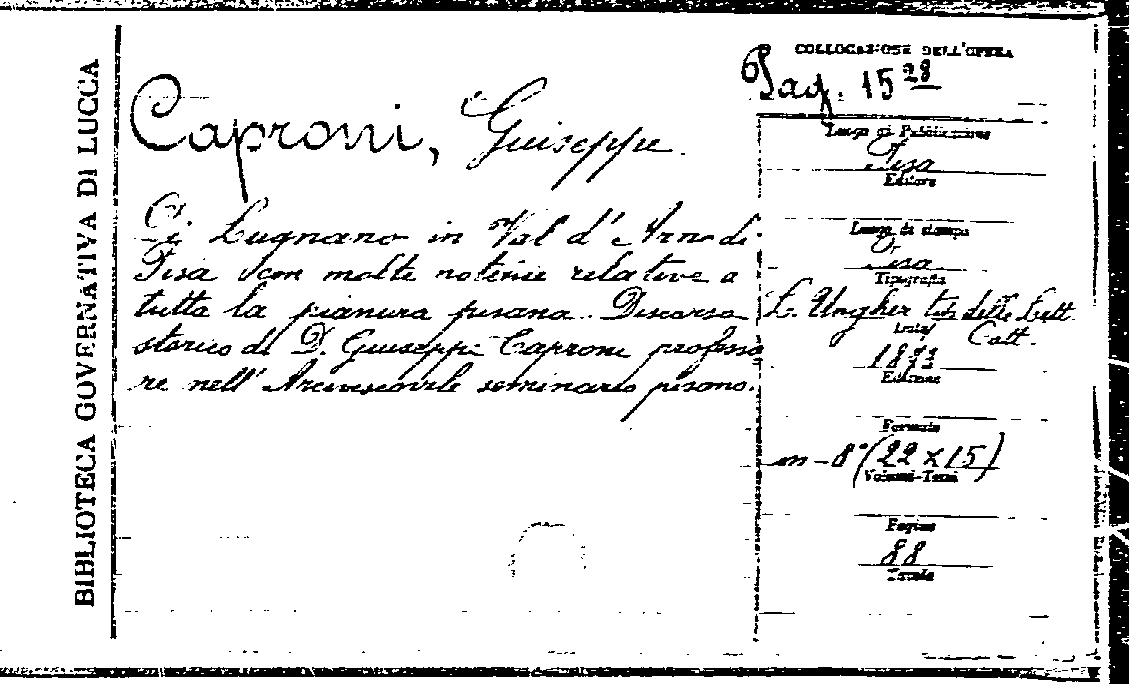 BIBLIOTECA GOVERNATIVA DI LUCCA
Caproni, Giuseppe.
Di Lugnano in Val d'Arno di
Pisa con molte notizie relative a
tutta la pianura pisana. Discorso
storico di D. Giuseppe Caproni professo
re nell'Arcivescovile seminario pisano.
COLLOCAZIONE DELL'OPERA
15 28
Luogo di Pubblicazione
Pisa
Editore
Luogo di stampa
Pisa
Tipografia
L. Ungher tip. delle Lett.
Catt.
Data
Edizione
Formato
in-8° (22 x 15)
Volumi-Tomi
Pagine
88
Tavole